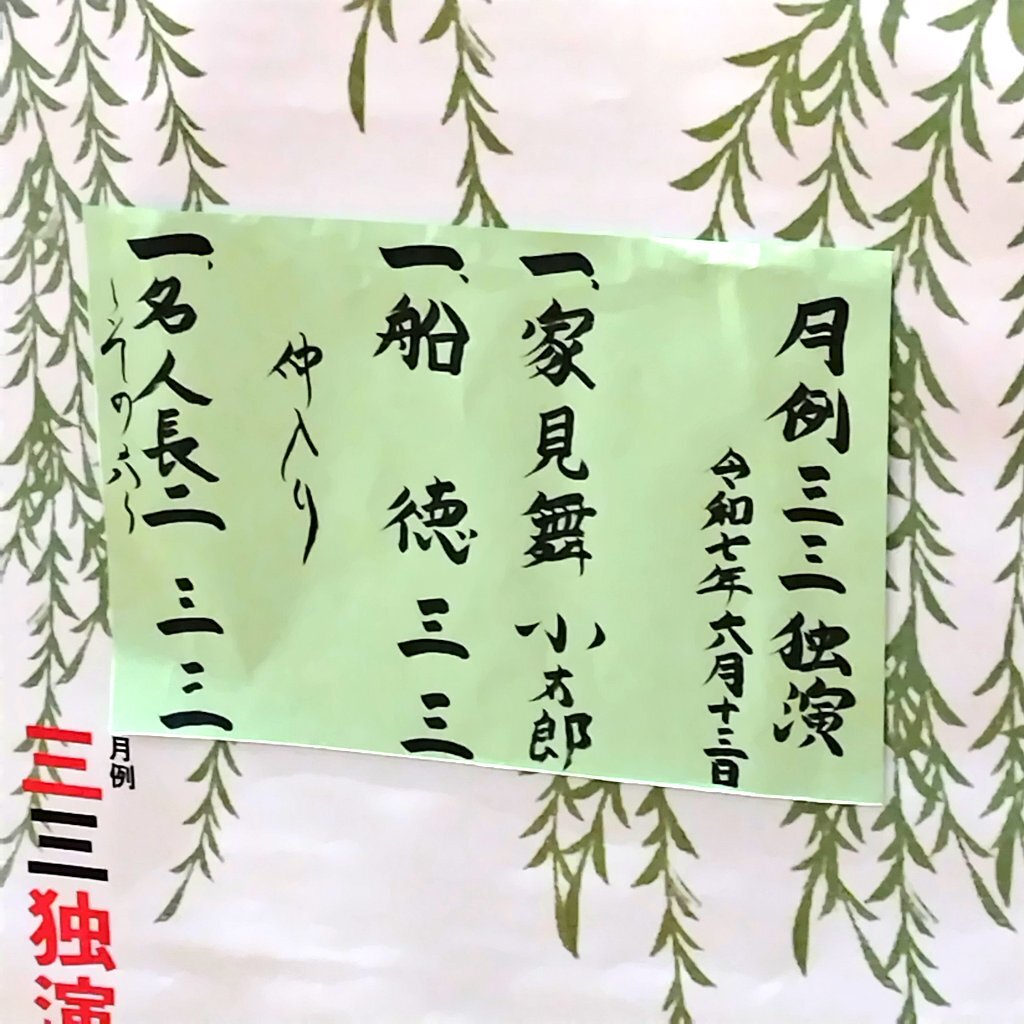 月例三三独演
令和七年六月十三日
一、家見舞 小太郎
一、船徳 三三
仲入り
一、名人長二 三三
～その六～
月例
三三独演